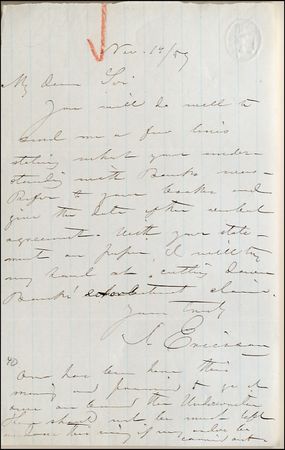 Nov. 14/59
My dear Sir
You will do well to
send me a few lines
stating what your under-
standing with Banks was.
Refer to your books and
give the date of the verbal
agreement. With your state-
ment on paper, I will try
my hand at cutting down
Banks' exorbitant claim.
Yours truly
J. Ericsson
has been here this
morning and promised to go at
once
should not be